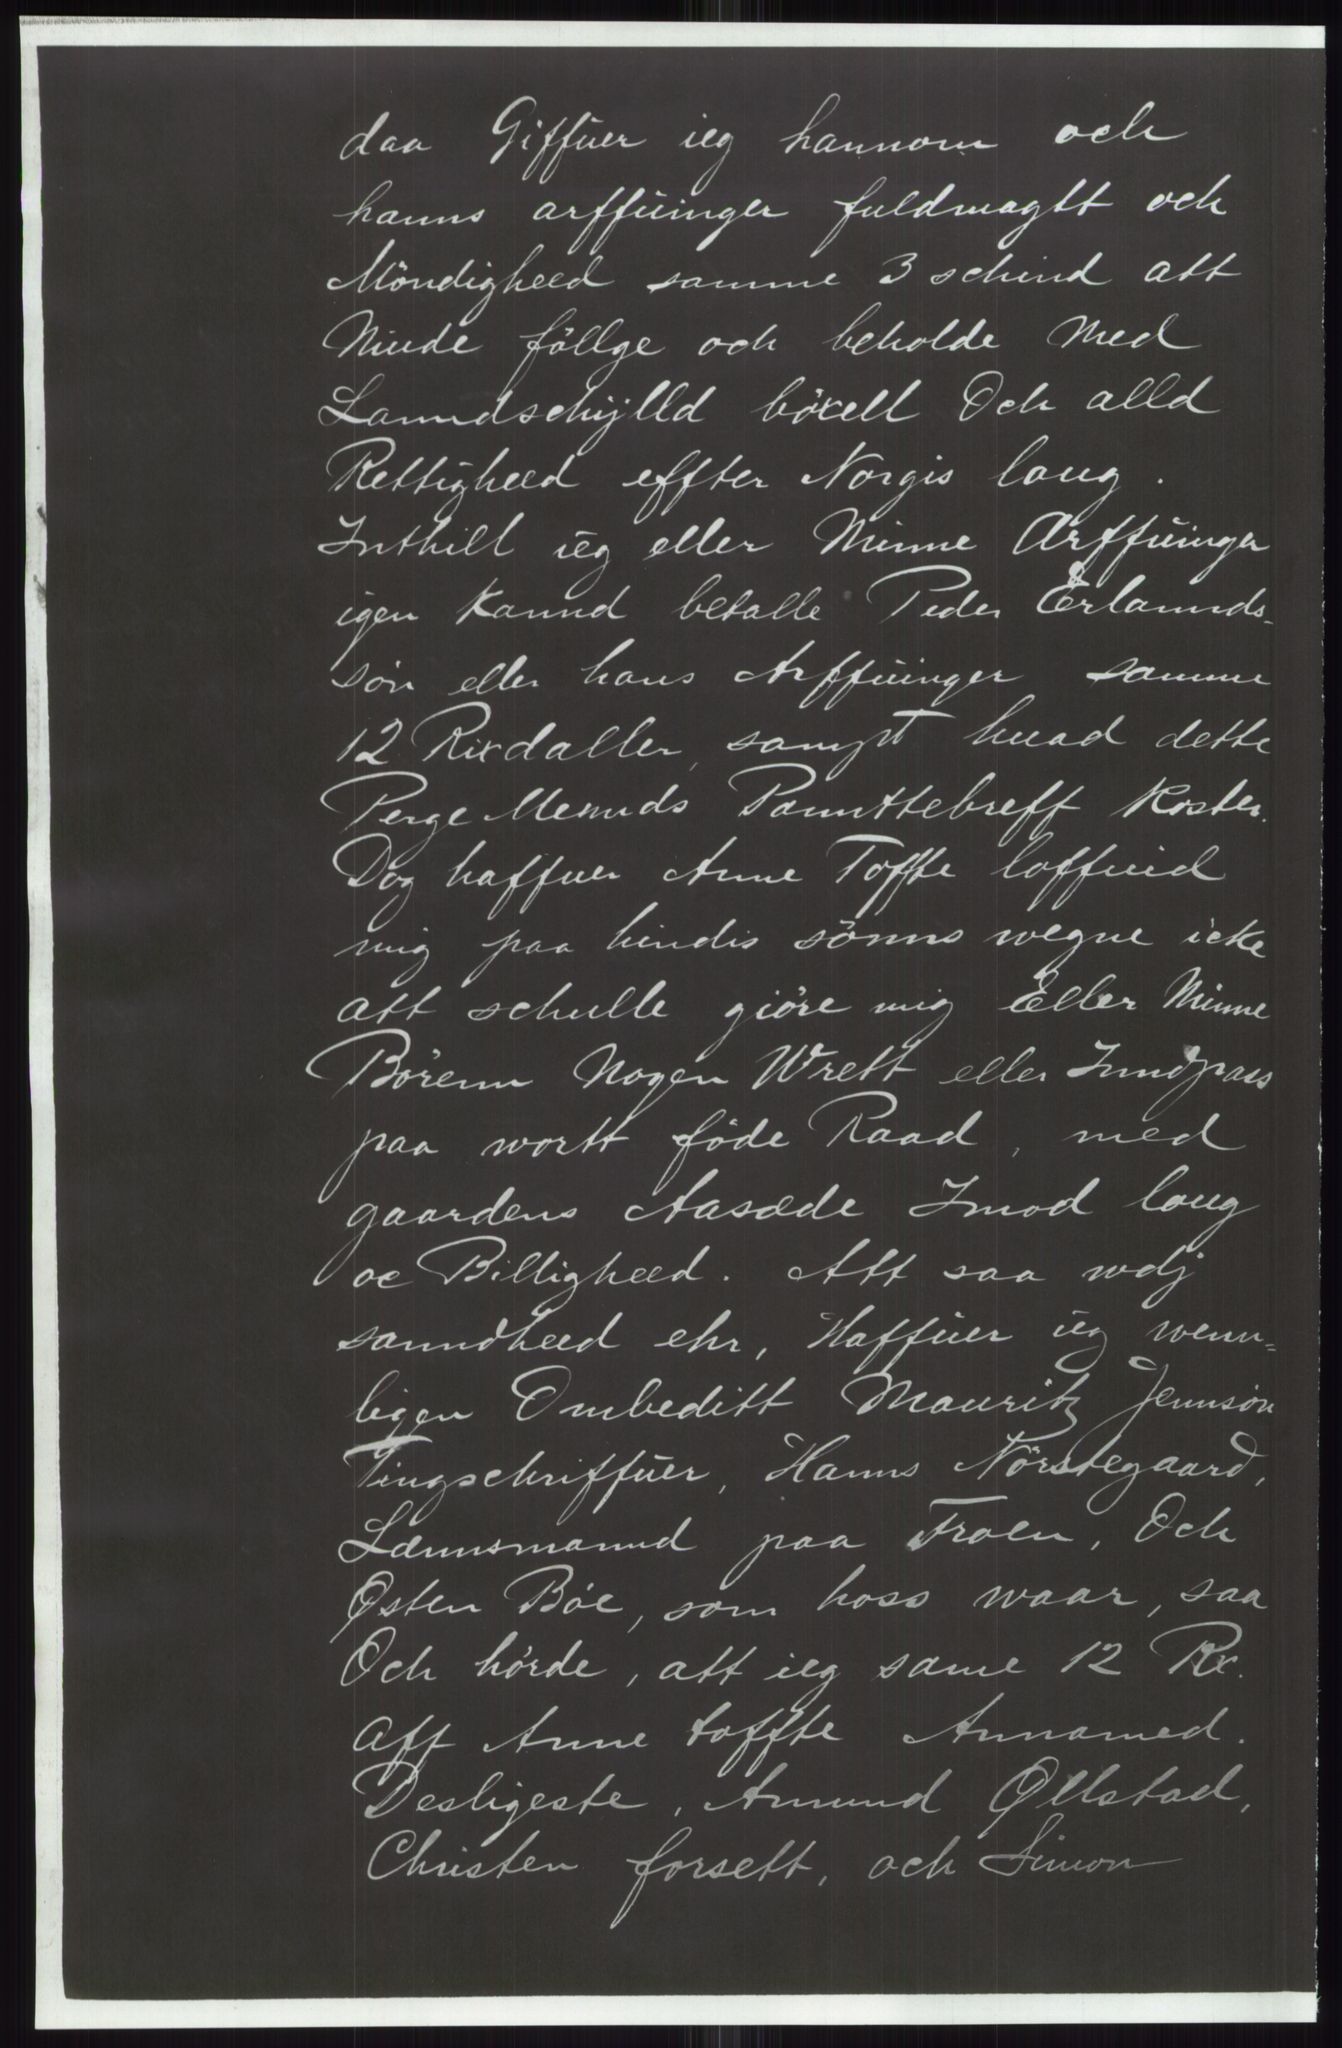 daa Giffuer ieg hannom och
hanns arffuinger fuldmagtt och
Möndigheed samme 3 schind att
Niude föllge och beholde Med
Lanndschylld böxell Och alld
Rettigheed effter Norgis laug.
Inthill ieg eller Minne Arffuinger
igen Kannd betalle Peder Erlannds-
sön eller hans Arffuinger samme
12 Rixdaller, sampt huad dette
PergeMennds Panttebreff Koster.
Dog haffuer Anne Toffte loffuid
mig paa hindis sönns wegne icke
att schulle giöre mig Eller Minne
Börenn Nogen Wrett eller Inndpass
paa wortt föde Raad, med
gaardens Aasæde Imod laug
oc Billigheed. Att saa wdj
sanndheed ehr, Haffuer ieg wenn-
ligen Ombeditt Mauritz Jennsön
Tingschriffuer, Hanns Nörstegaard,
Lænnsmannd paa Froen, Och
Østen Böe, som hoss waar, saa
Och hörde, att ieg same 12 Rx.
Aff Anne toffte Annamed.
Desligeste, Amund Øllstad,
Christen forsett, och Simon